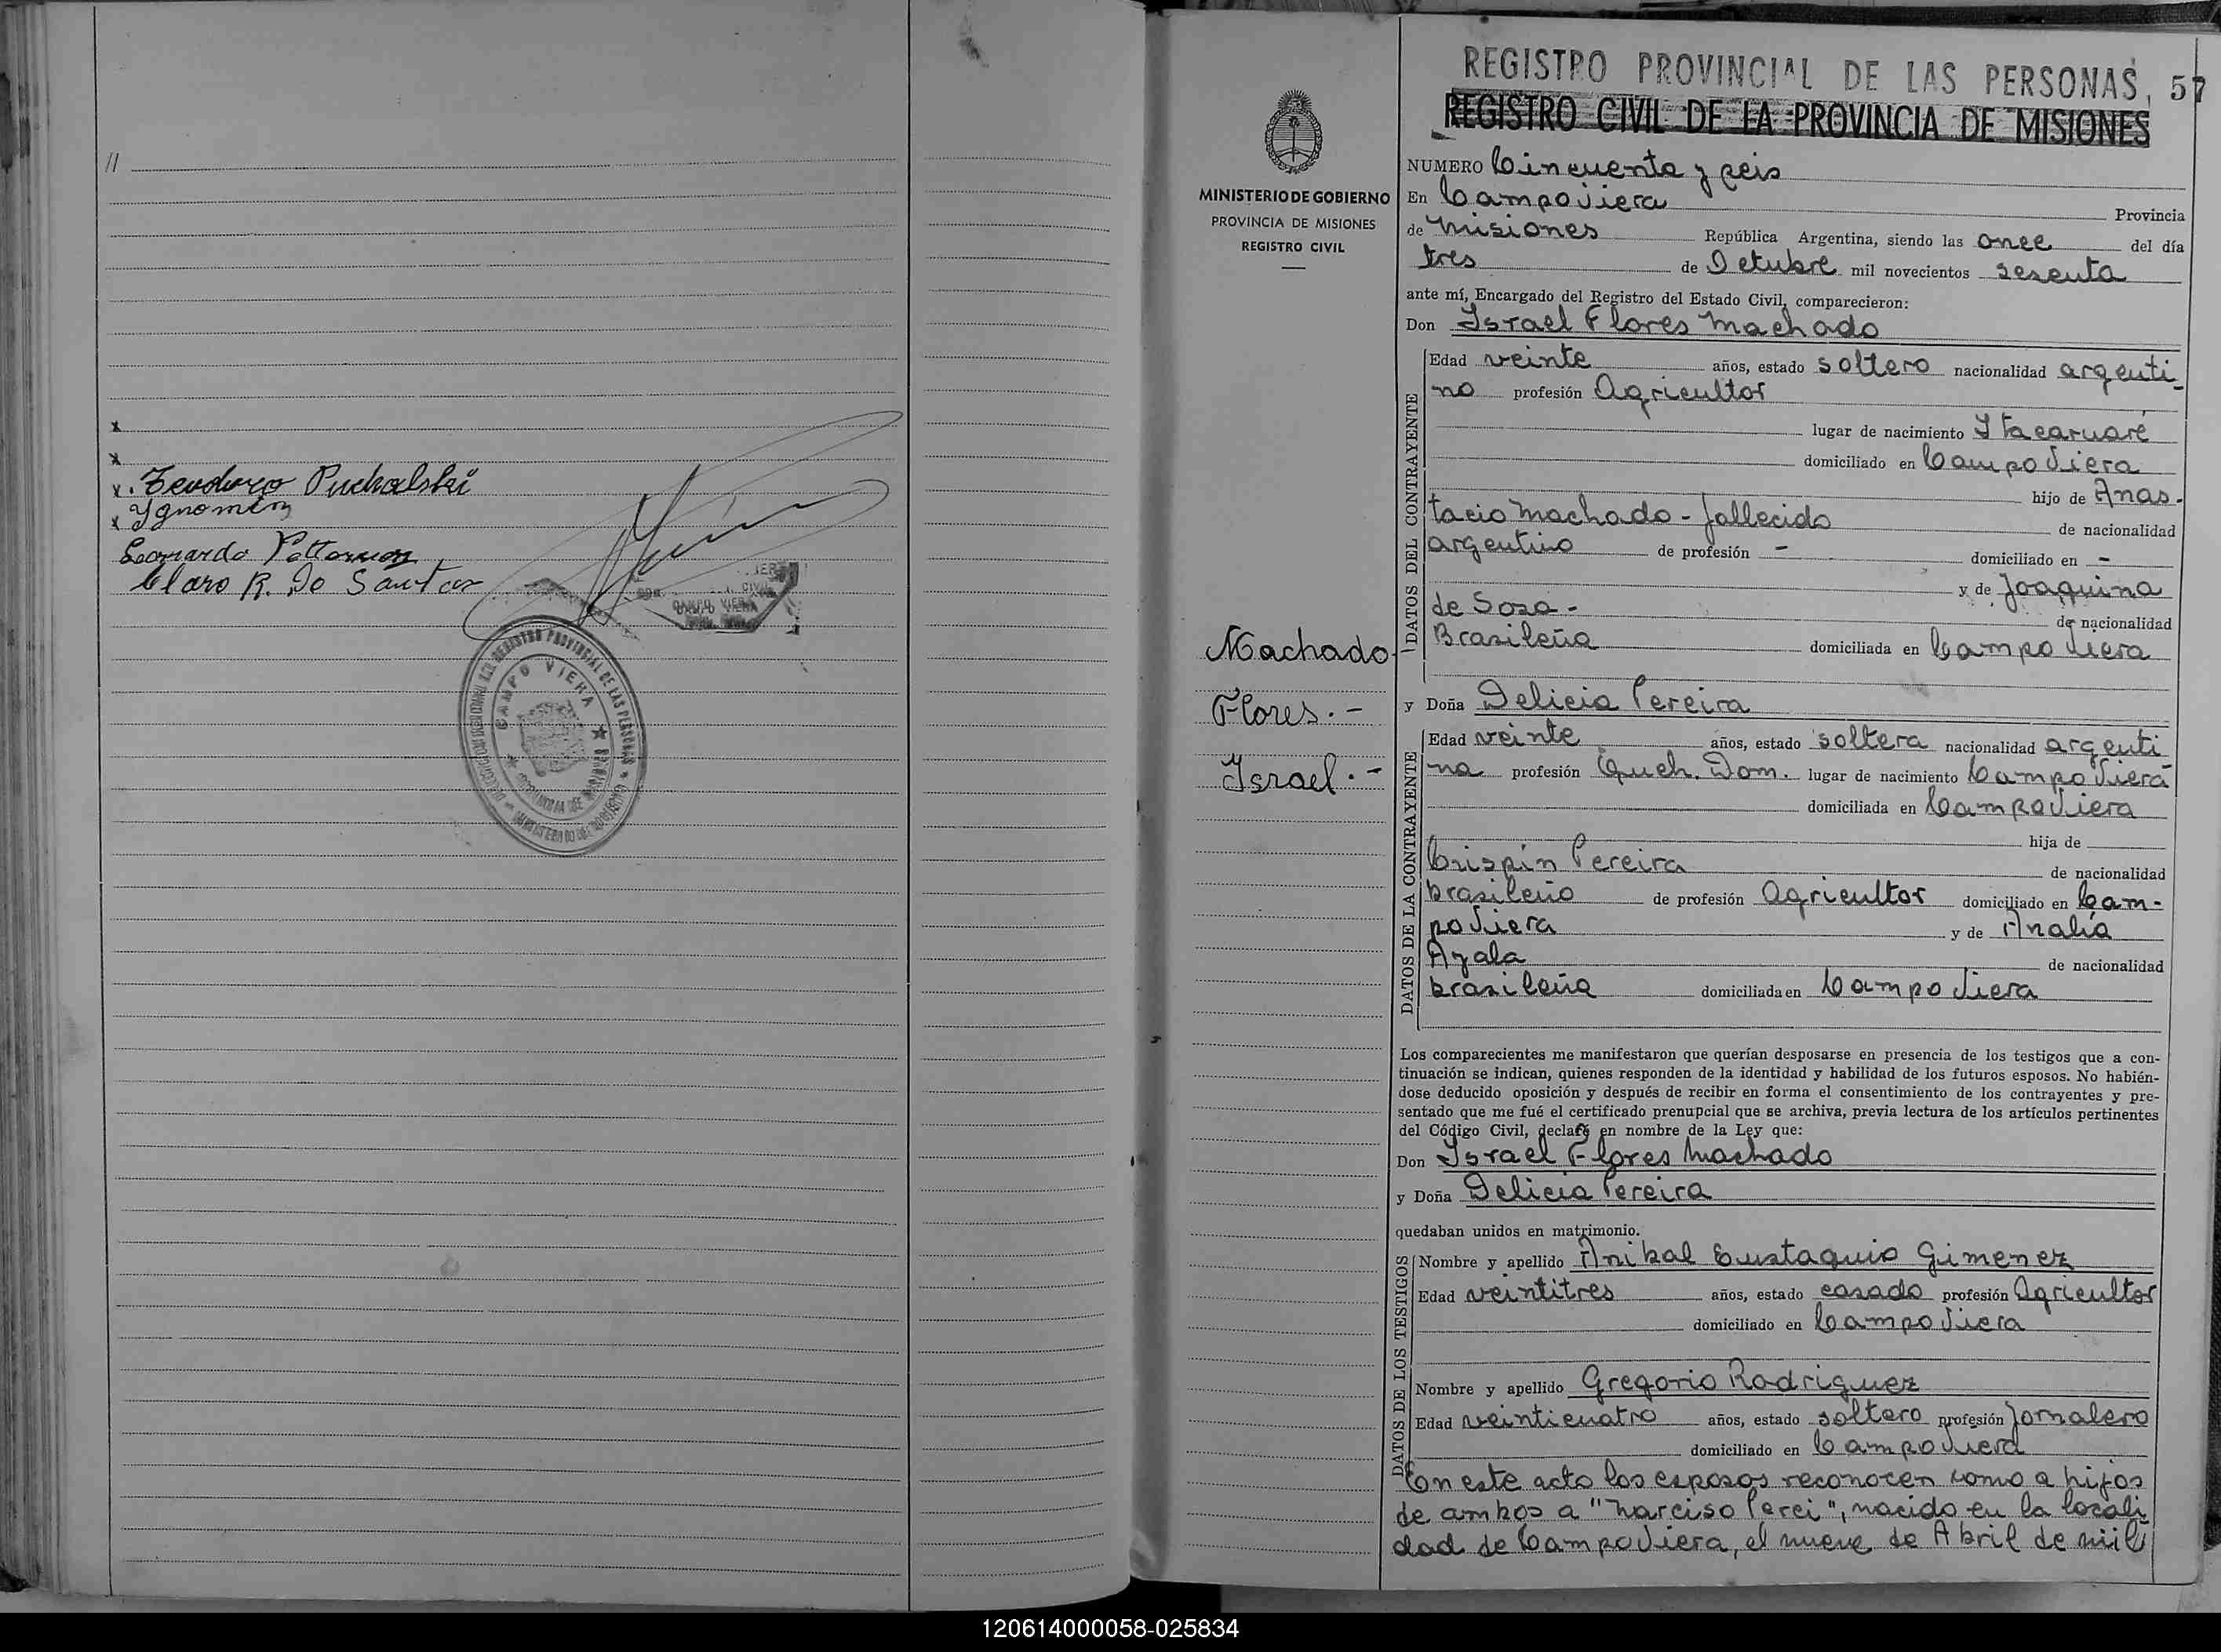 //
x
x
x. Teodoro Puchalski
x Ygnomén
Leonardo
Claro R. Do Santos
CAMPO VIERA
REGISTRO PROVINCIAL DE LAS PERSONAS
CAMPO VIERA
REGISTRO PROVINCIAL DE LAS PERSONAS, 57
REGISTRO CIVIL DE LA PROVINCIA DE MISIONES
MINISTERIO DE GOBIERNO
PROVINCIA DE MISIONES
REGISTRO CIVIL
Machado
Flores.-
Israel.-
NUMERO Cincuenta y seis
En Campo Viera Provincia
de Misiones República Argentina, siendo las once del día
tres de Octubre mil novecientos sesenta
ante mí, Encargado del Registro del Estado Civil, comparecieron:
Don Israel Flores Machado
DATOS DEL CONTRAYENTE
Edad veinte años, estado soltero nacionalidad argenti-
no profesión Agricultor
lugar de nacimiento Itacaruaré
domiciliado en Campo Viera
hijo de Anas-
tacio Machado - fallecido de nacionalidad
argentino de profesión - domiciliado en -
y de Joaquina
de Sosa - de nacionalidad
Brasileña domiciliada en Campo Viera
y Doña Delicia Pereira
DATOS DE LA CONTRAYENTE
Edad veinte años, estado soltera nacionalidad argenti
na profesión Queh. Dom. lugar de nacimiento Campo Viera
domiciliada en Campo Viera
hija de
Crispín Pereira de nacionalidad
brasileño de profesión Agricultor domiciliado en Cam-
po Viera y de Analía
Ayala de nacionalidad
brasileña domiciliada en Campo Viera
Los comparecientes me manifestaron que querían desposarse en presencia de los testigos que a con-
tinuación se indican, quienes responden de la identidad y habilidad de los futuros esposos. No habién-
dose deducido oposición y después de recibir en forma el consentimiento de los contrayentes y pre-
sentado que me fué el certificado prenupcial que se archiva, previa lectura de los artículos pertinentes
del Código Civil, declaré en nombre de la Ley que:
Don Israel Flores Machado
y Doña Delicia Pereira
quedaban unidos en matrimonio.
DATOS DE LOS TESTIGOS
Nombre y apellido Anibal Eustaquio Gimenez
Edad veintitres años, estado casado profesión Agricultor
domiciliado en Campo Viera
Nombre y apellido Gregorio Rodriguez
Edad veinticuatro años, estado soltero profesión Jornalero
domiciliado en Campo Viera
En este acto los esposos reconocen como a hijos
de ambos a "Narciso Perci", nacido en la locali
dad de Campo Viera, el nueve de Abril de mil
120614000058-025834